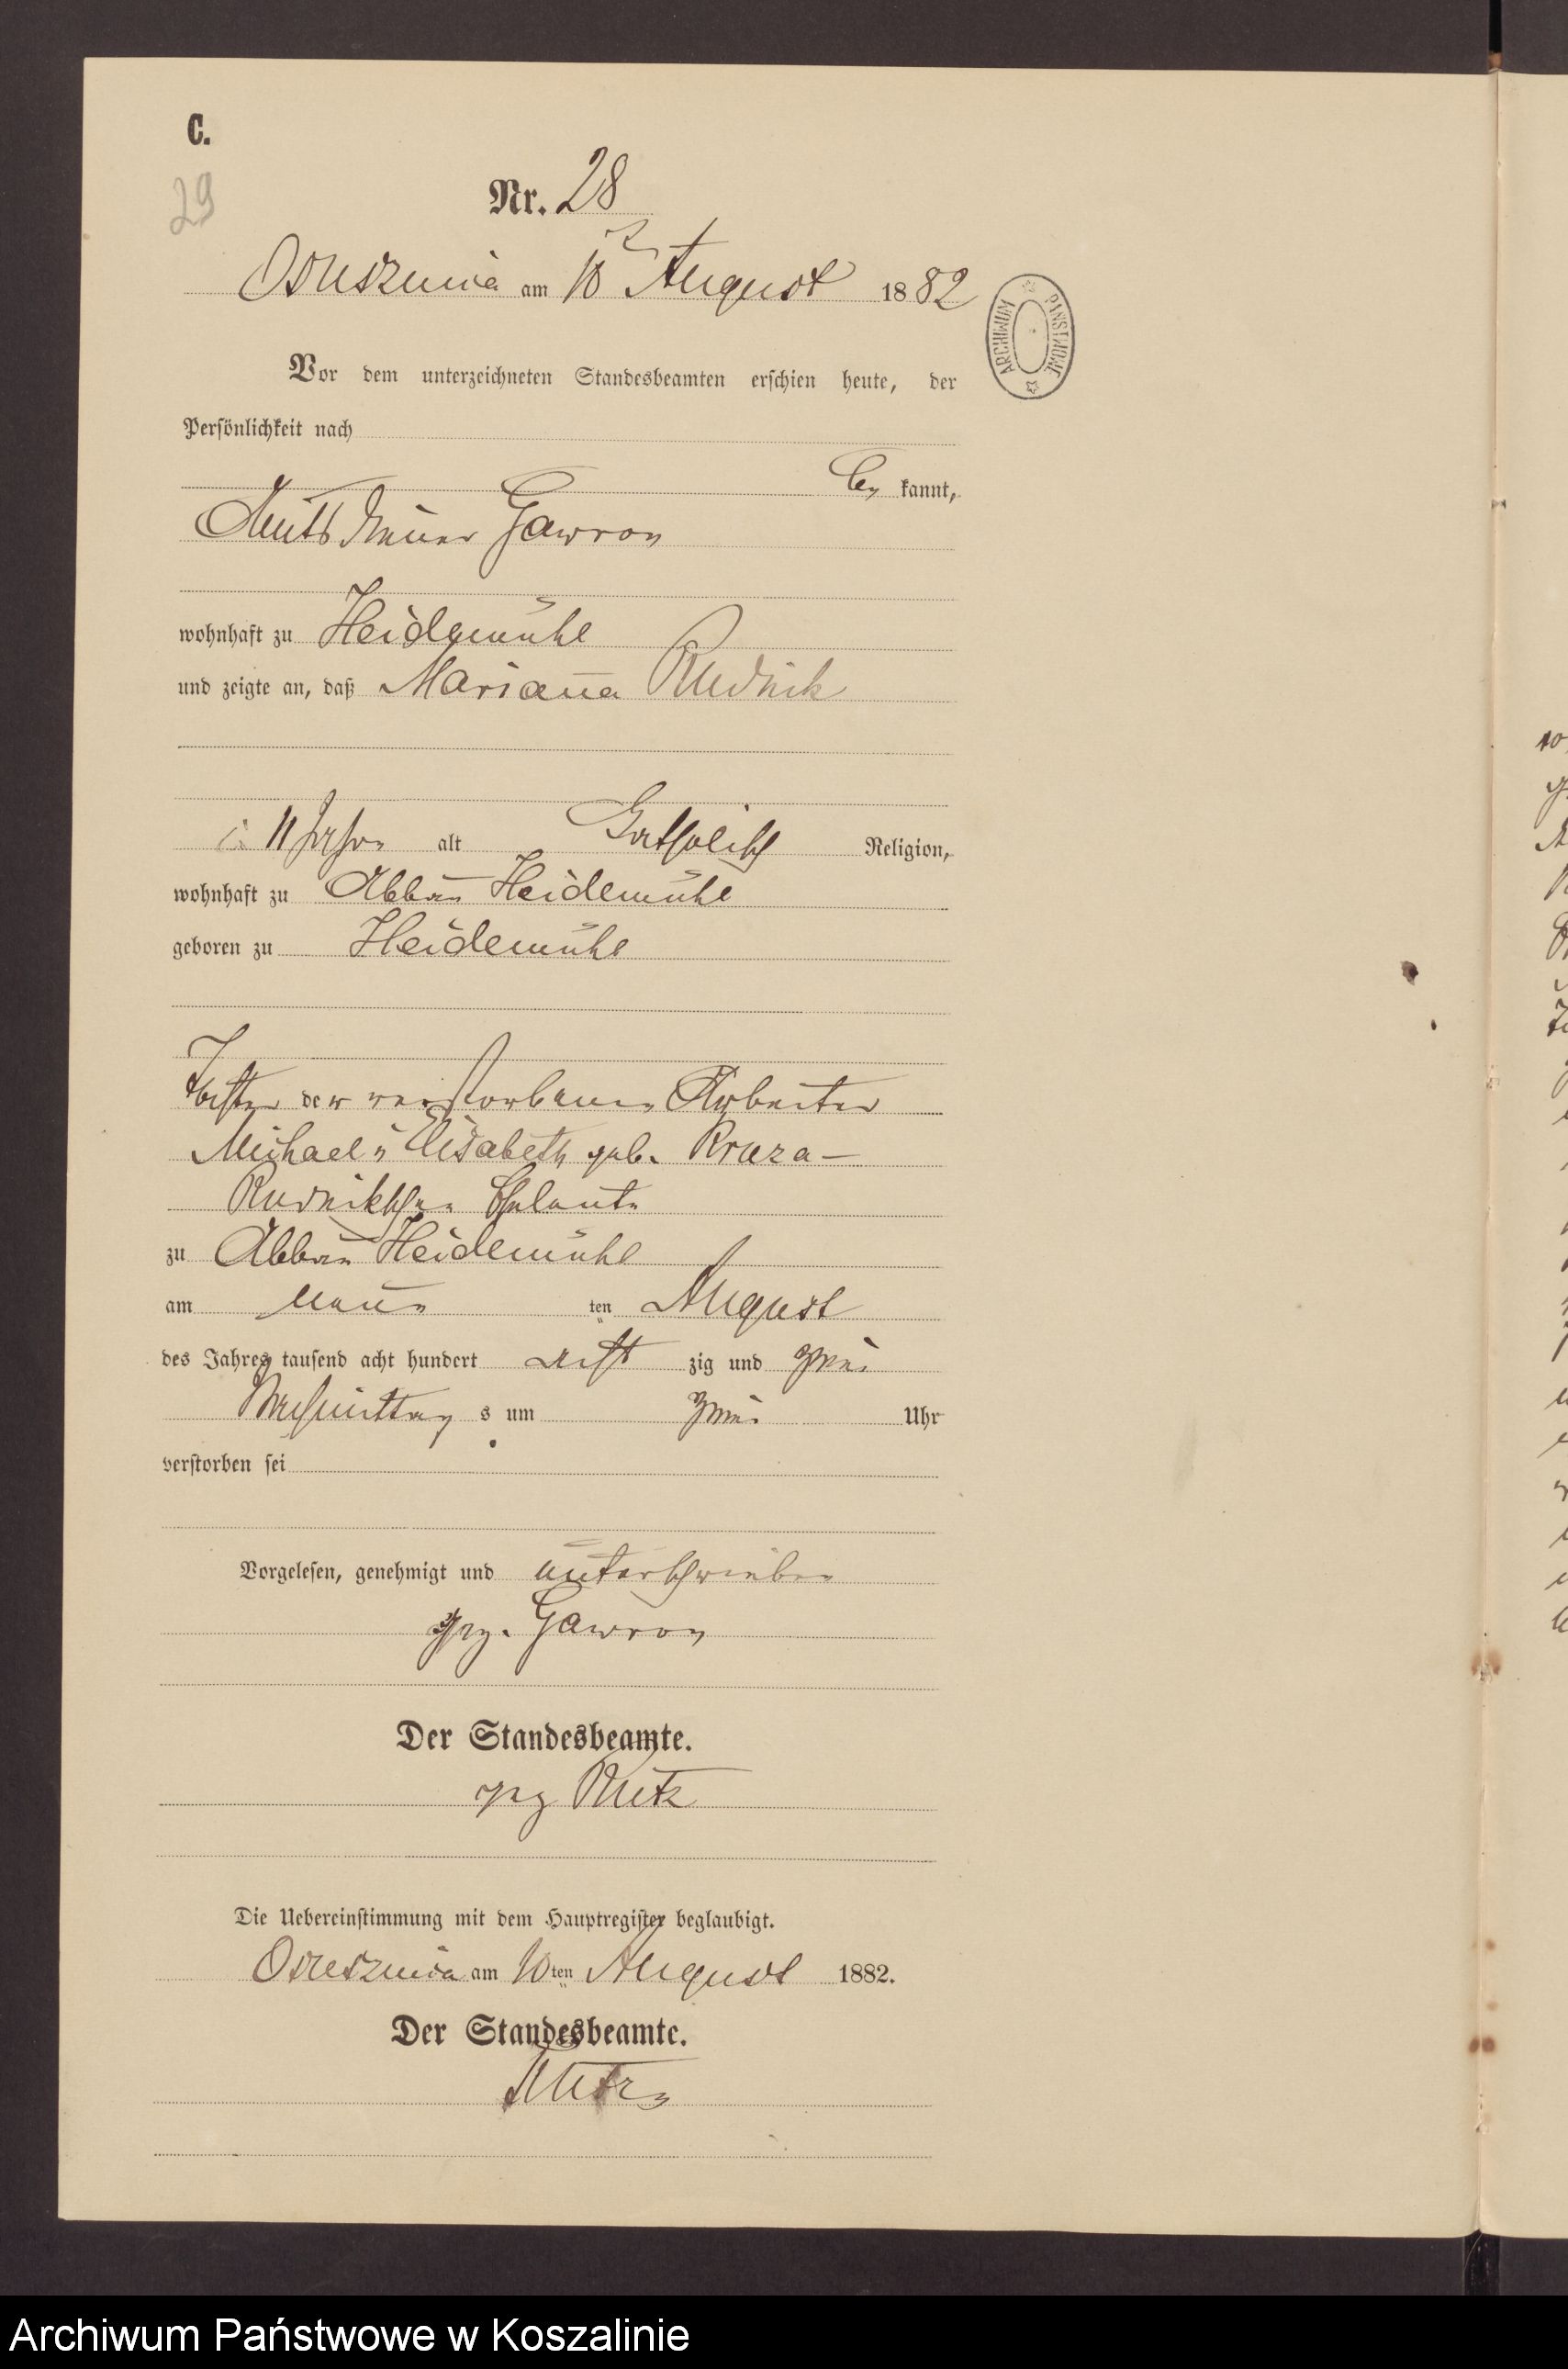 C.
29
Nr. 28
Ossusznica am 10 August 1882
ARCHIWUM PAŃSTWOWE
Vor dem unterzeichneten Standesbeamten erschien heute, der
Persönlichkeit nach
be kannt,
Amtsdiener Gawron
wohnhaft zu Heidemühl
und zeigte an, daß Marianna Rudnik
11 Jahre alt Catholisch Religion,
wohnhaft zu Abbau Heidemühl
geboren zu Heidemühl
Tochter der verstorbenen Arbeiter
Michael u Elisabeth geb.
Rudnikschen Eheleute
zu Abbau Heidemühl
am neun ten August
des Jahres tausend acht hundert acht zig und zwei
Nachmittag s um zwei Uhr
verstorben sei
Vorgelesen, genehmigt und unterschrieben
gez. Gawron
Der Standesbeamte.
gez
Die Uebereinstimmung mit dem Hauptregister beglaubigt.
Ossusznica am 10 ten August 1882.
Der Standesbeamte.
Archiwum Państwowe w Koszalinie